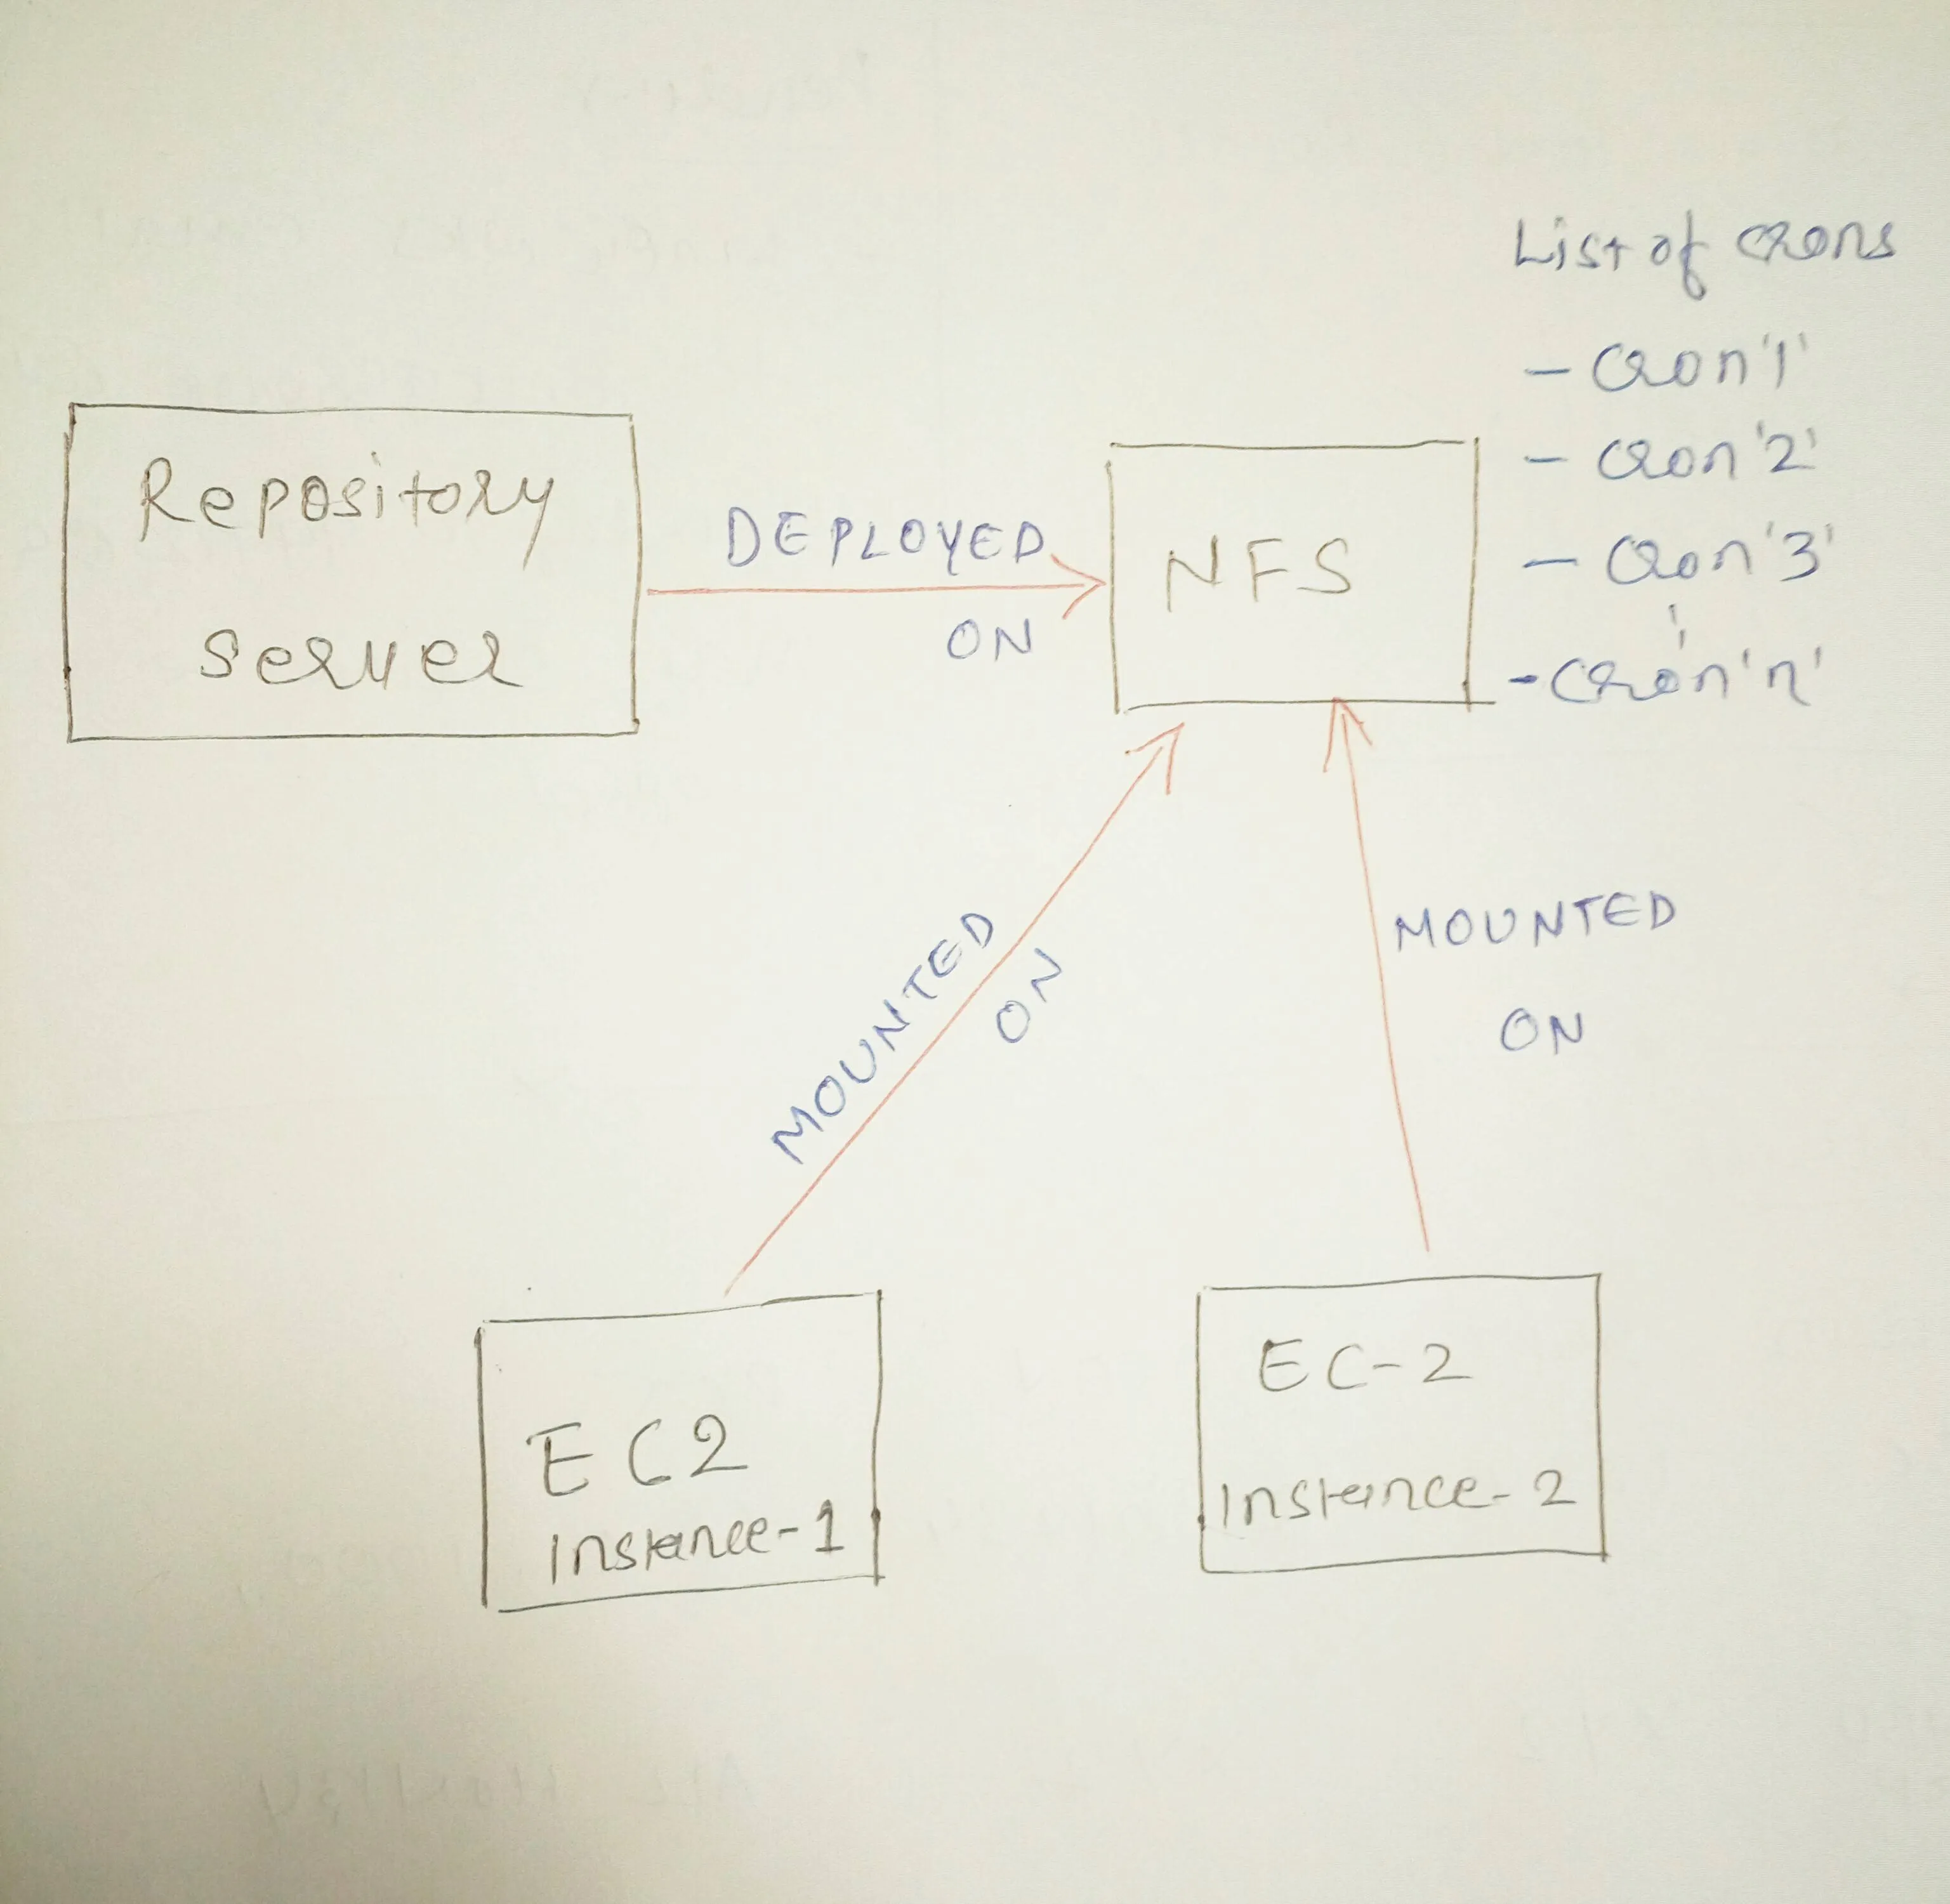 List of crons
- Cron'1'
- Cron'2'
- Cron'3'
- Cron'n'
Repository
Server
DEPLOYED
ON
NFS
MOUNTED
ON
MOUNTED
ON
EC2
Instance-1
EC-2
Instance-2